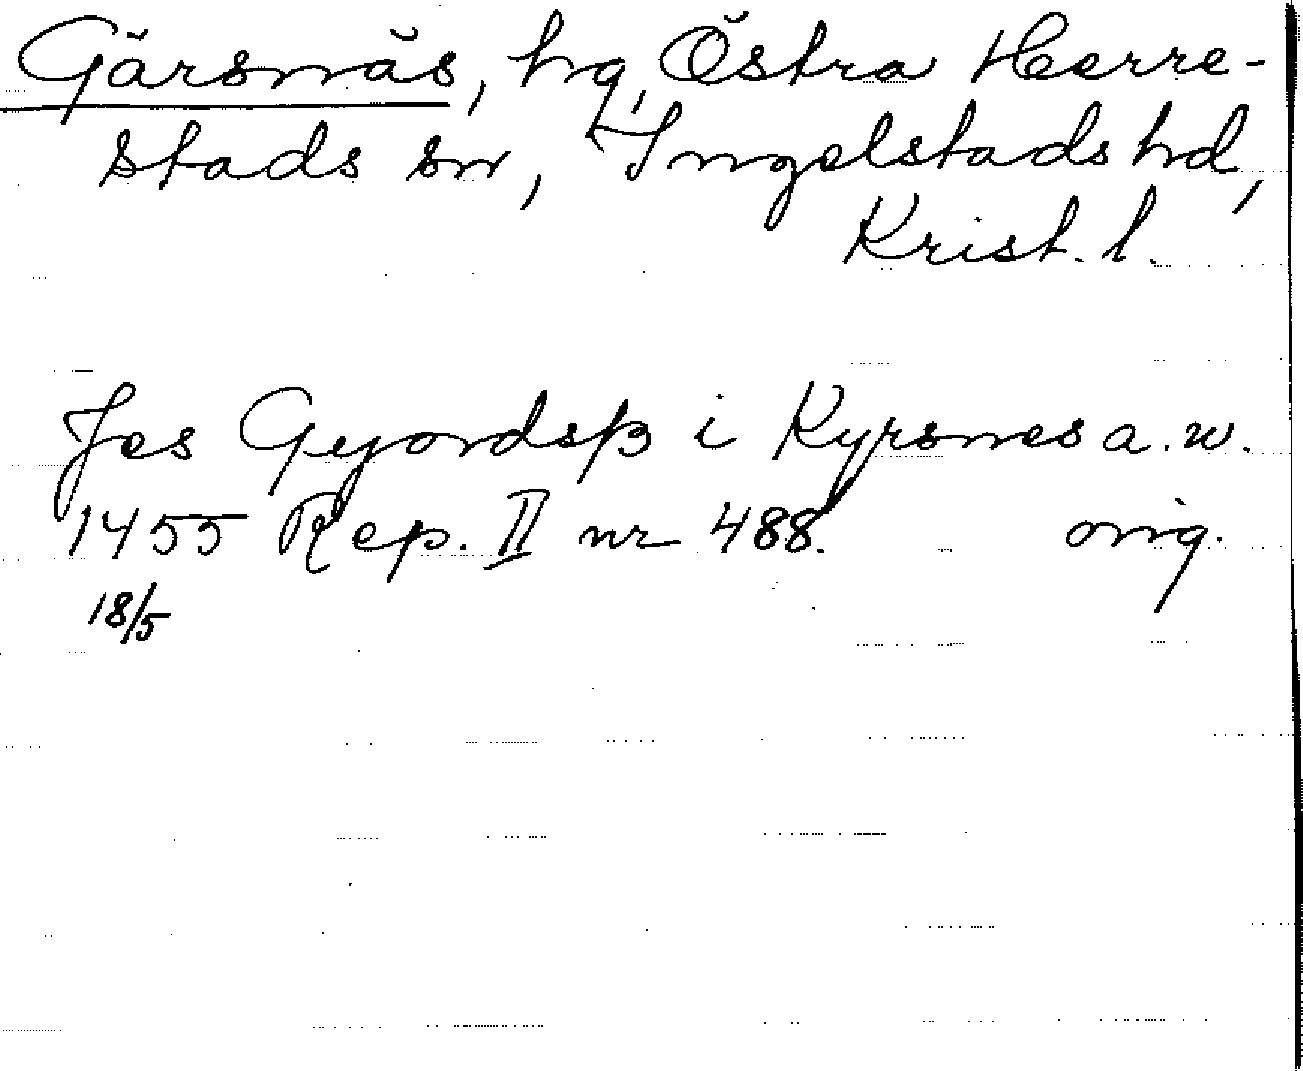 Gärsnäs, hg, Östra Herre-
stads sn, Ingelstads hd,
Krist. l.
Jes Gyordsß i Kyrsnes a.w.
1455 Rep. II nr 488. orig.
18/5